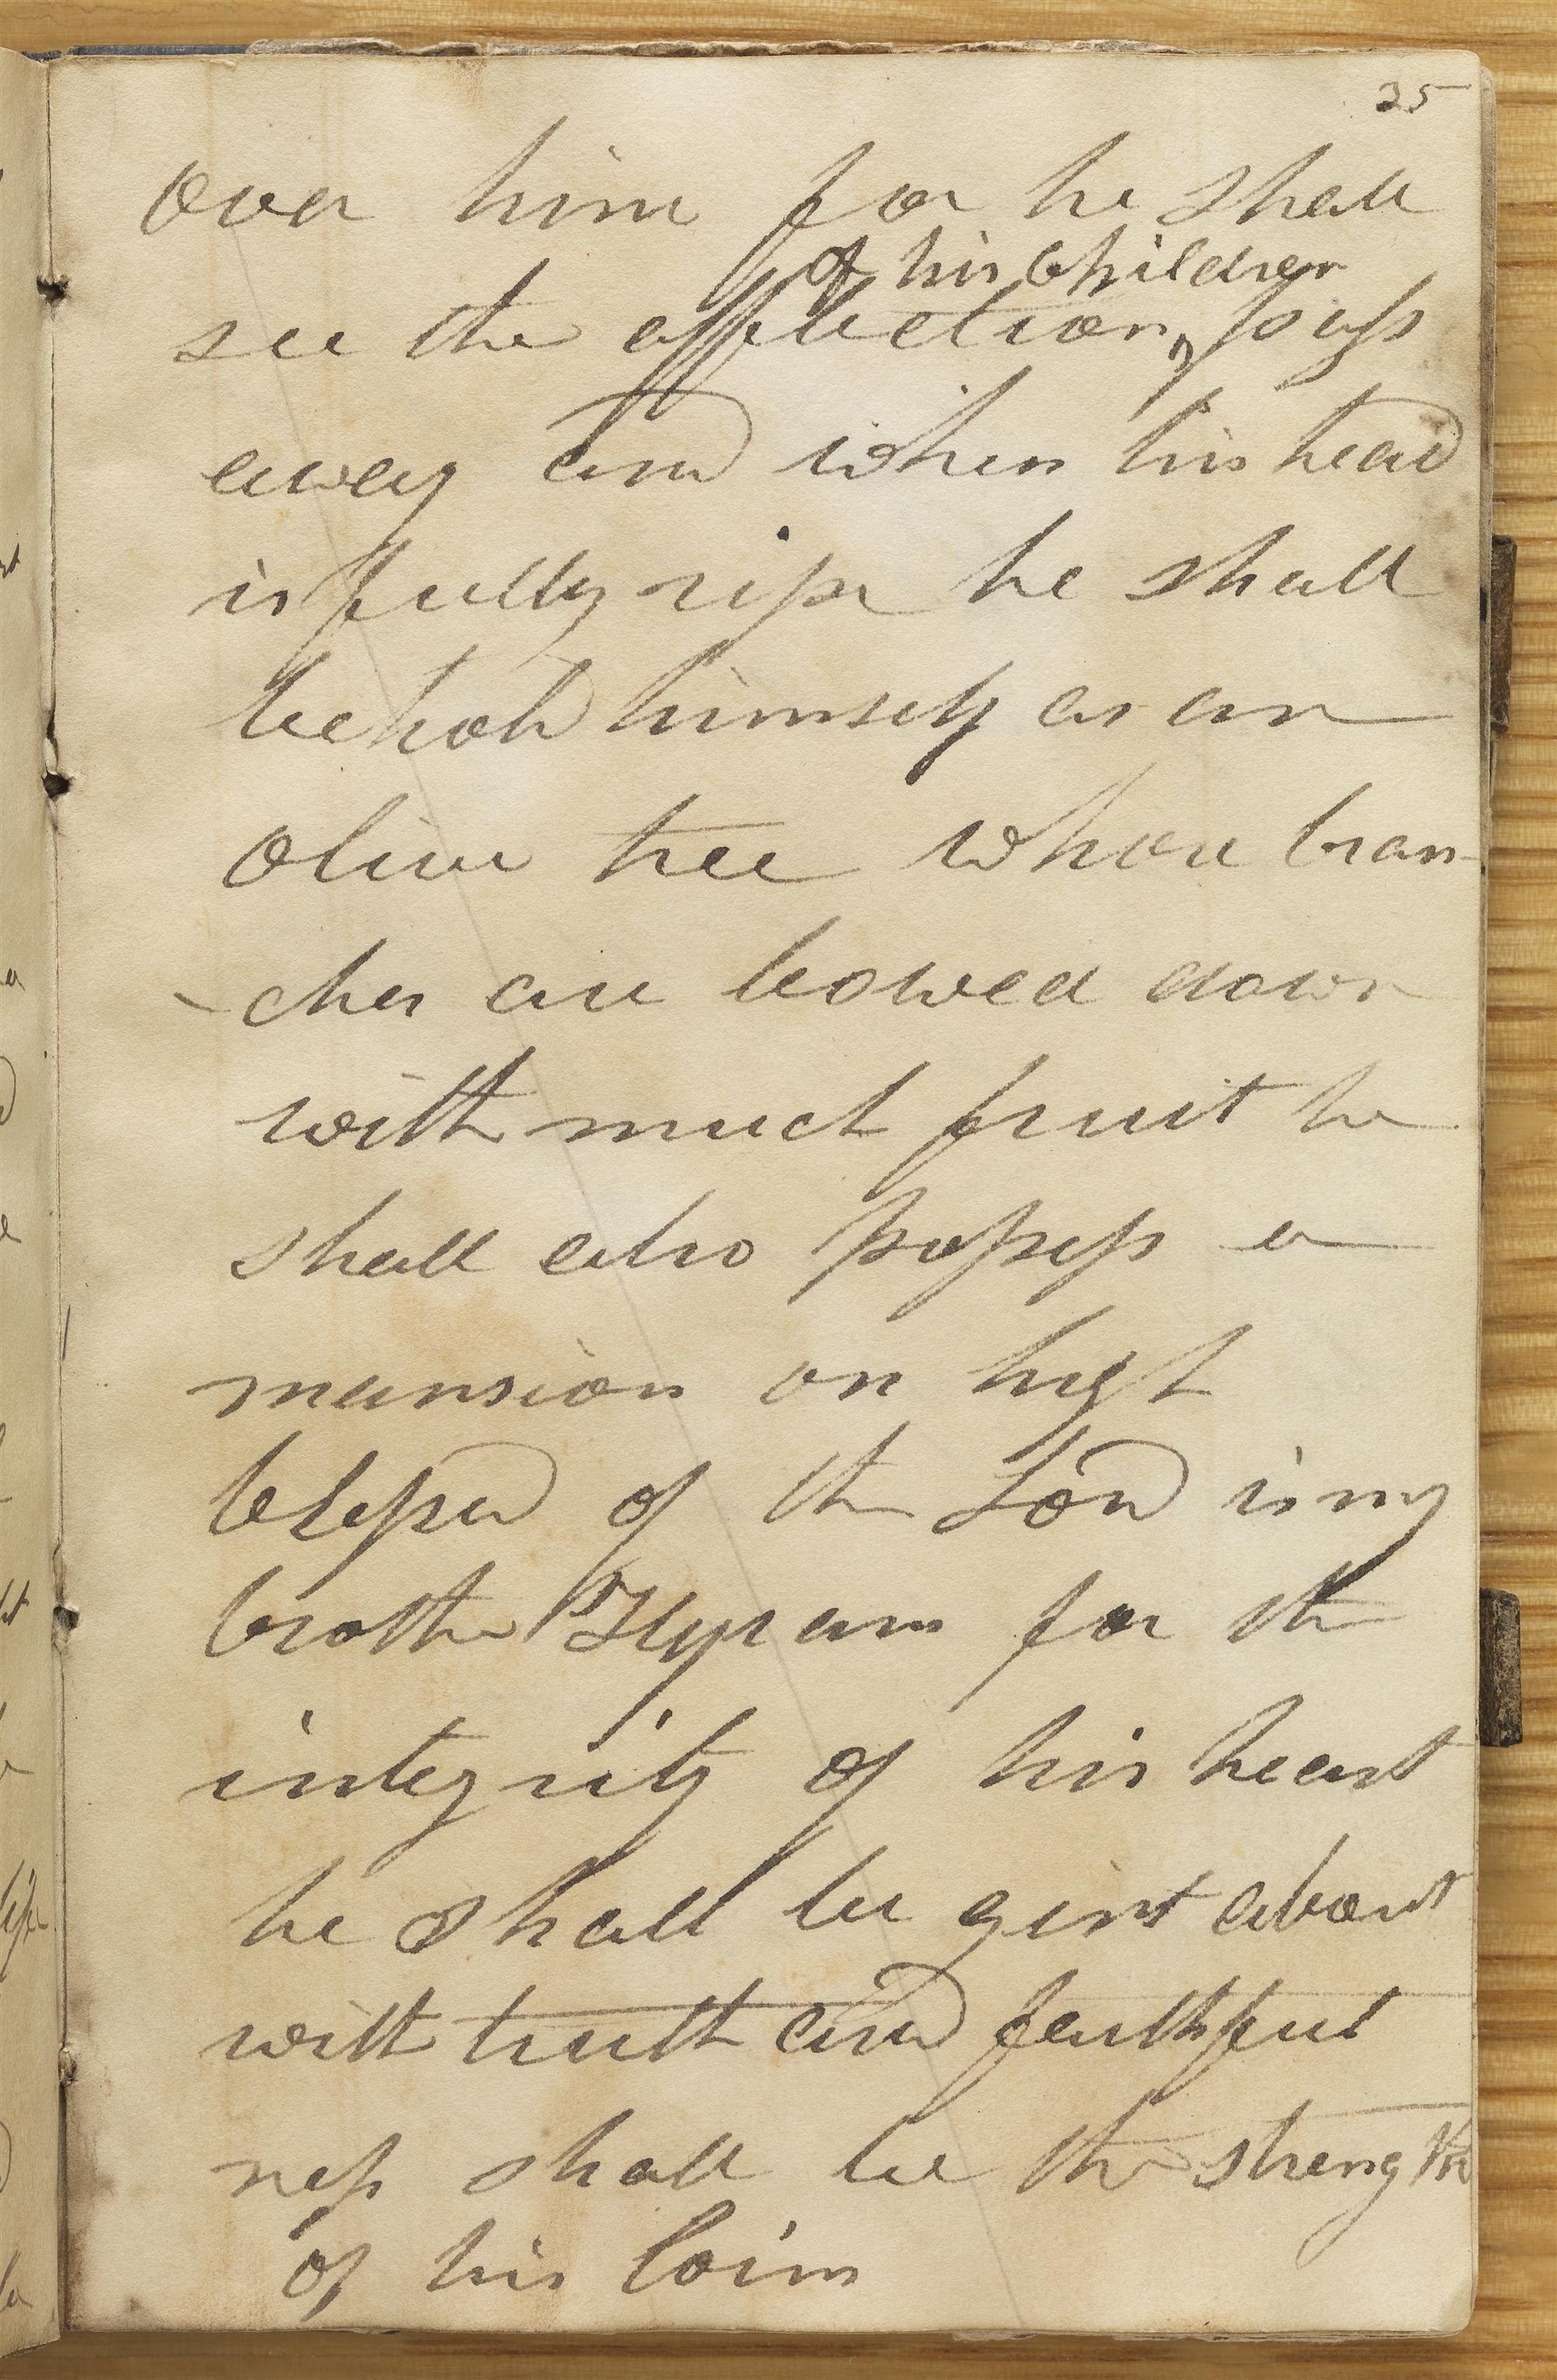 25
over him for he shall
of his children
see the affliction, pass
away and when his head
is fully ripe he shall
behold himself as an
olive tree whose bran-
-ches are bowed down
with much fruit he
shall also possess a
mansion on high
blessed of the Lord is my
brother Hyram for the
integrity of his heart
he shall be girt about
with truth and faithful
ness shall be the strength
of his loins